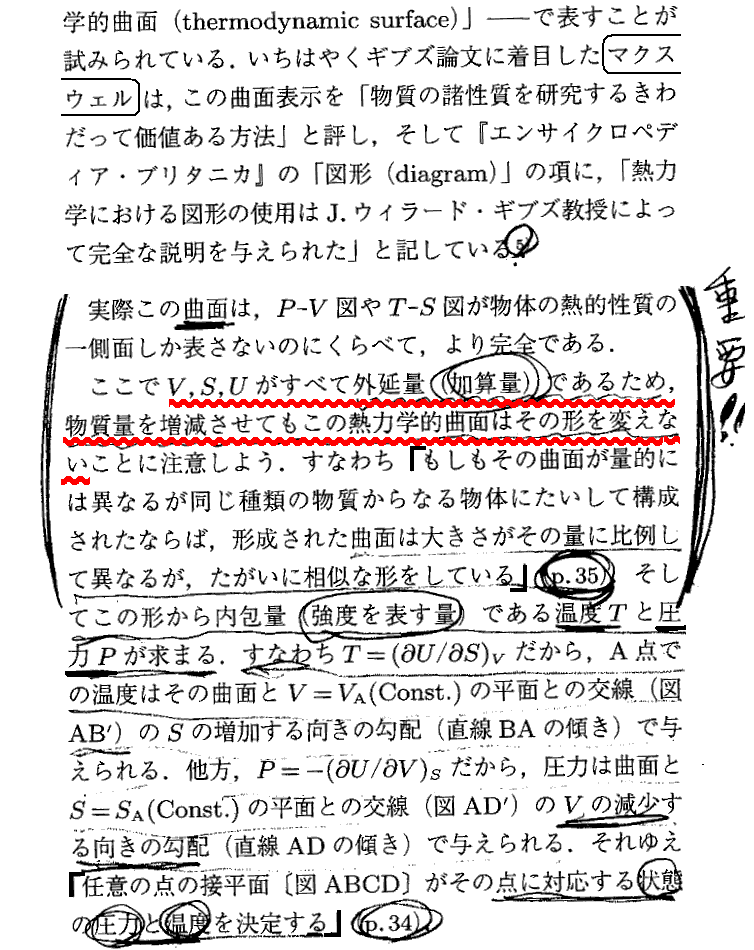 学的曲面（thermodynamic surface）」——で表すことが
試みられている．いちはやくギブズ論文に着目したマクス
ウェルは，この曲面表示を「物質の諸性質を研究するきわ
だって価値ある方法」と評し，そして『エンサイクロペデ
ィア・ブリタニカ』の「図形（diagram）」の項に，「熱力
学における図形の使用は J. ウィラード・ギブズ教授によっ
て完全な説明を与えられた」と記している
実際この曲面は，P-V 図や T-S 図が物体の熱的性質の
一側面しか表さないのにくらべて，より完全である．
ここで V, S, U がすべて外延量（加算量）であるため，
物質量を増減させてもこの熱力学的曲面はその形を変えな
いことに注意しよう．すなわち「もしもその曲面が量的に
は異なるが同じ種類の物質からなる物体にたいして構成
されたならば，形成された曲面は大きさがその量に比例し
て異なるが，たがいに相似な形をしている」(p. 35)．そし
てこの形から内包量（強度を表す量）である温度 T と圧
力 P が求まる．すなわち T=(∂U/∂S)V だから，A 点で
の温度はその曲面と V=VA(Const.) の平面との交線（図
AB′）の S の増加する向きの勾配（直線 BA の傾き）で与
えられる．他方，P=−(∂U/∂V)S だから，圧力は曲面と
S=SA(Const.) の平面との交線（図 AD′）の V の減少す
る向きの勾配（直線 AD の傾き）で与えられる．それゆえ
「任意の点の接平面〔図 ABCD〕がその点に対応する状態
の圧力と温度を決定する」(p. 34)．
重要!!